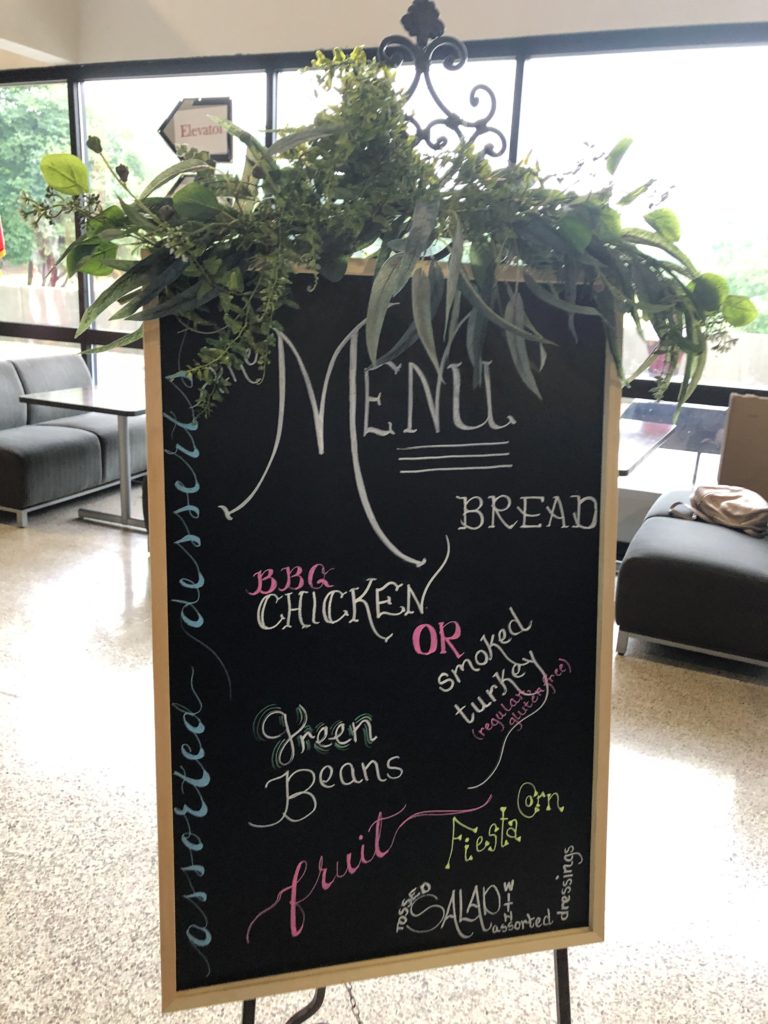 Elevator
The
MENU
BREAD
BBQ
CHICKEN
OR
smoked
turkey
(regular
gluten free)
green
Beans
fruit
Fiesta Corn
TOSSED SALAD WITH
assorted dressings
assorted desserts